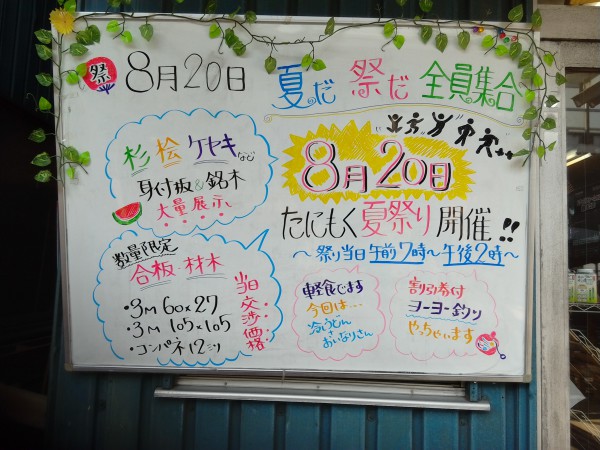 祭 8月20日
夏だ 祭だ 全員集合
8月20日
たにもく夏祭り開催!!
〜祭り当日午前7時〜午後2時〜
杉 桧 ケヤキなど
耳付板&銘木
大量展示
数量限定
合板・材木
・3M 60×27
・3M 105×105
・コンパネ12ミリ
当日交渉価格
軽食です
今回は…
冷しうどん
おいなりさん
割引券付
ヨーヨー釣り
やっちゃいます